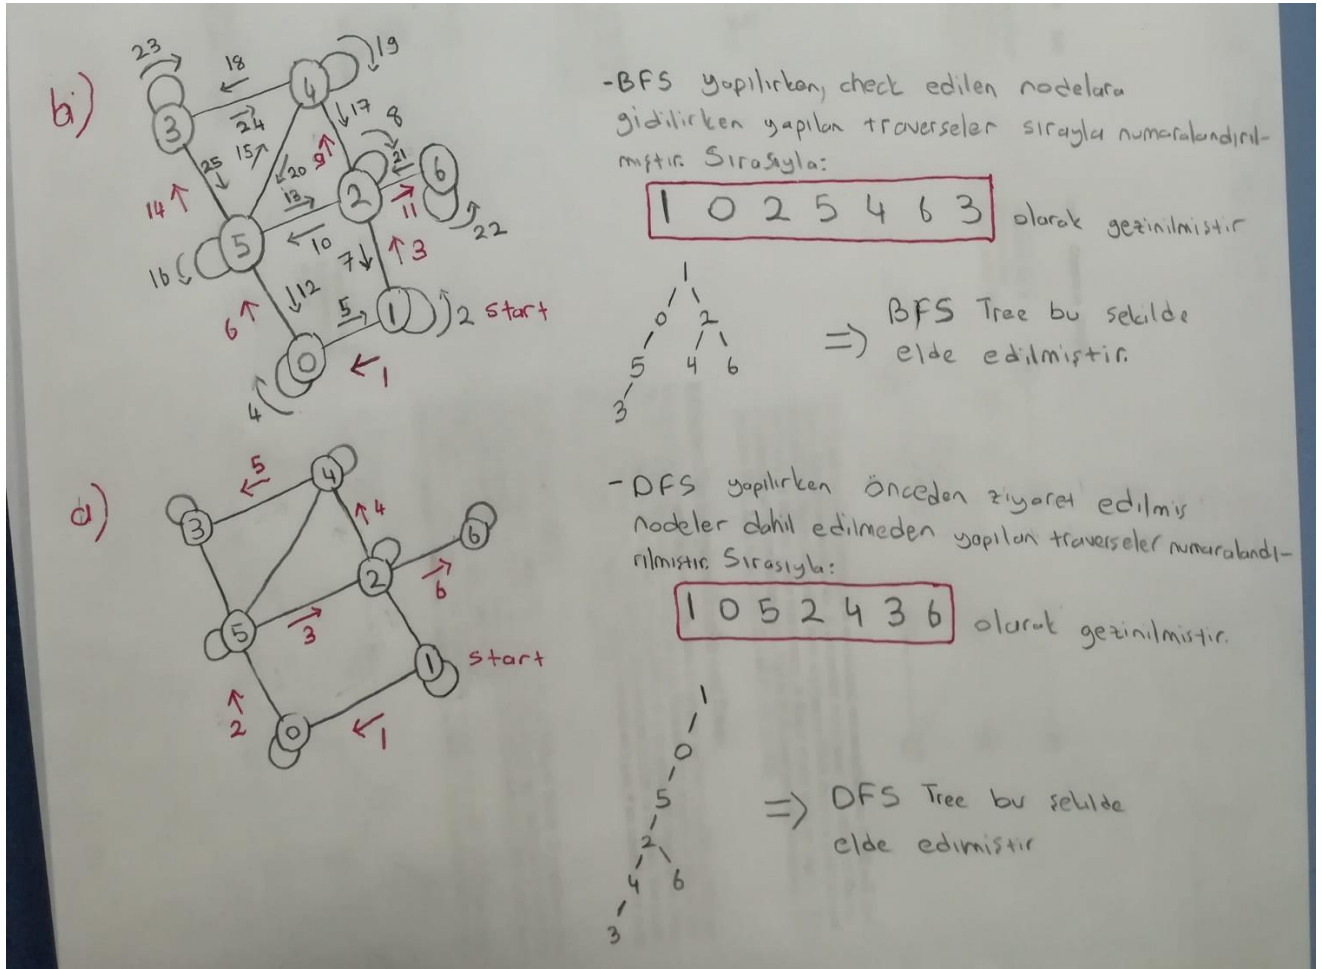 b)
23
18
19
4
3
24
17
8
15
9
25
20
21
6
13
2
14
11
22
5
10
16
7
3
12
6
5
1
2 start
0
1
4
-BFS yapılırken, check edilen nodelara
gidilirken yapılan traverseler sırayla numaralandırıl-
mıştır. Sırasıyla:
1 0 2 5 4 6 3 olarak gezinilmistir
1
0 2
5 4 6
3
=> BFS Tree bu sekilde
elde edilmiştir.
a)
5
4
3
4
6
2
6
5
3
1 start
2
0
1
-DFS yapılırken önceden ziyaret edilmiş
nodeler dahil edilmeden yapılan traverseler numaralandı-
rılmıstır. Sırasıyla:
1 0 5 2 4 3 6 olarak gezinilmistir.
1
0
5
2
4 6
3
=> DFS Tree bu sekilde
elde edimistir